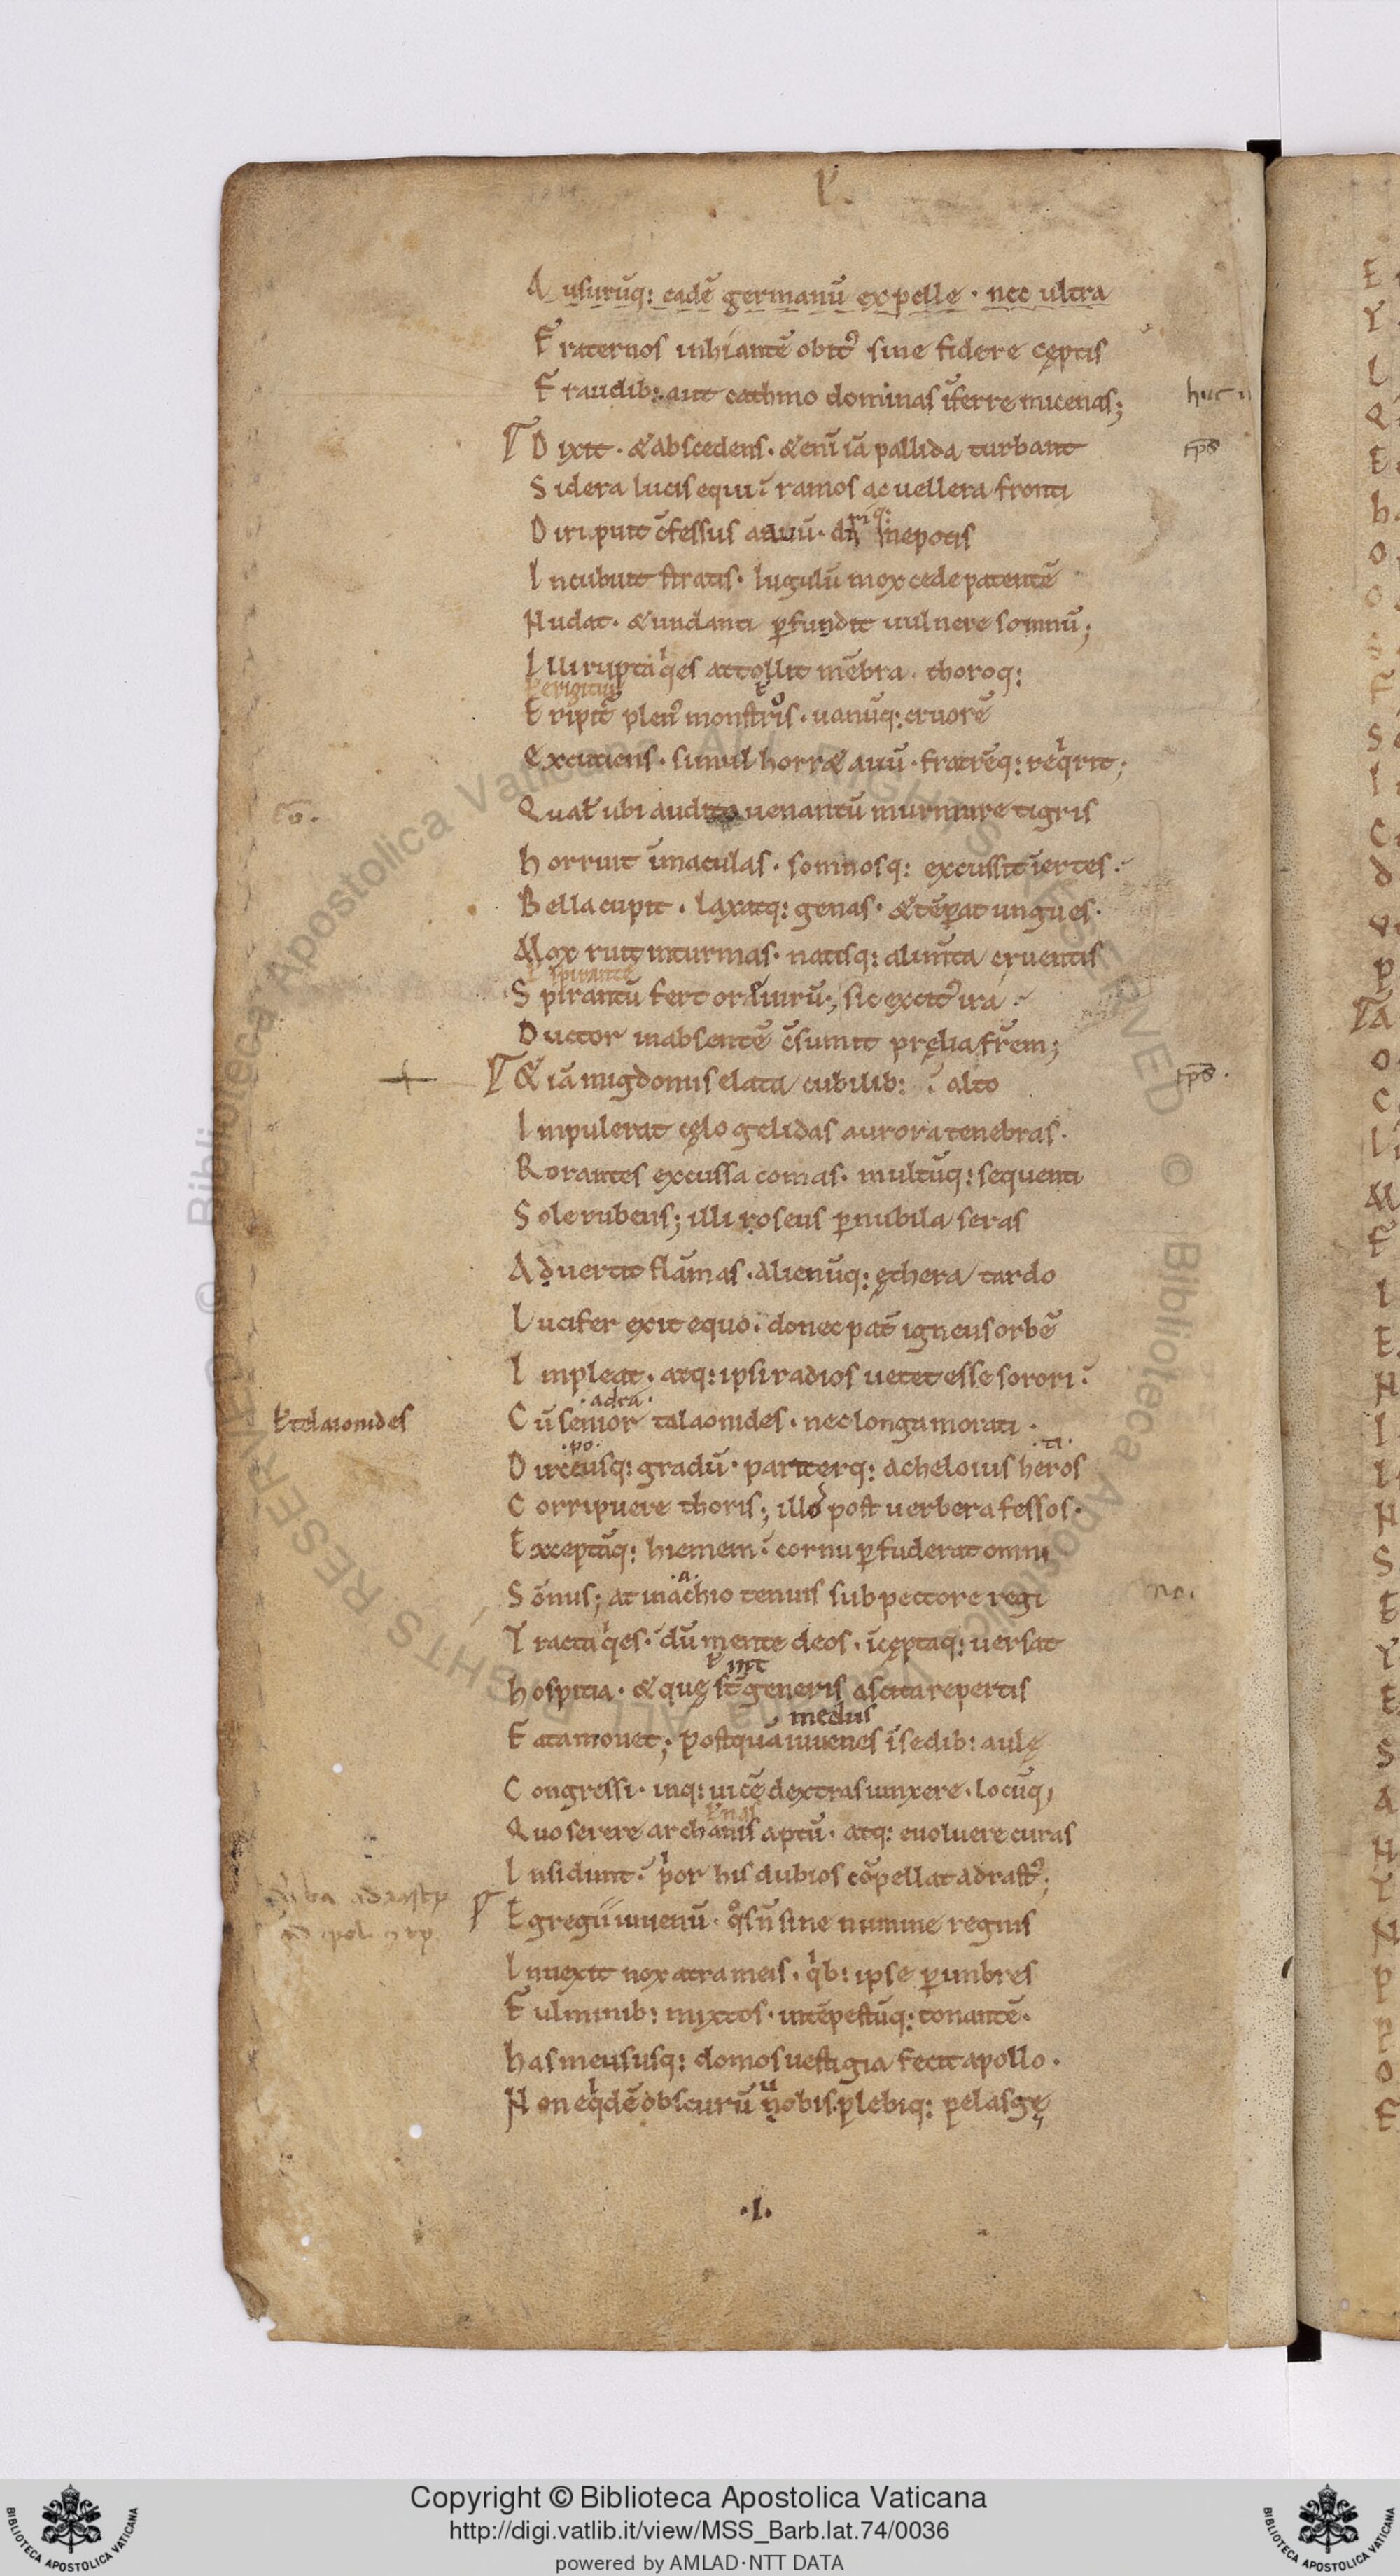 A usurūq: eadē germanū expelle · nec ultra
F raternos inhiantē obit᾿ sine fidere cęptis
F raudib: aut cathmo dominas īferre micenas;
D ixit · & abscedens · & eni iā pallida turbant
tp̄s
S idera lucis equi ī ramos ac vellera fronti
D iripuit c̄fessus auū · dirīq: ī nepotis
I ncubuit stratis · Iugulū mox cede patentē
N udat · & undanti p̱fundit uulnere somnū;
I lli rupta q͛es attollit mēbra · thoroq:
erigitur
E ripit᾿ plen᾿ monstris · uanūq: cruorē
E xcutiens · simul horr& auū · fratrēq: req͛rit;
cō.
Q ual̄ ubi audito uenantū murmure tigris
h orruit īmaculas · somnosq: excussit īertes ·
B ella cupit · laxatq: genas · & tēp̱at ungues ·
M ox ruit inturmas · natisq: alim̄ta cruentis
spirantē
S pirantū fert ore uirū; sic excit᾿ ira ·
D uctor inabsentē c̄sumit pręlia fr̄em;
& iā migdoniis elata cubilib: ī alto
tp̄s ·
I mpulerat cęlo gelidas aurora tenebras ·
R orantes excussa comas · multūq: sequenti
S ole rubens; illi roseus p̱ nubila seras
A dvertit flāmas · alienūq: ęthera tardo
L ucifer exit equo · donec pat̄ igneus orbē
I mpleat · atq: ipsi radios uetet esse sorori ·
· adra ·
Telaionides
C ū senior talaonides · nec longa morati ·
· po · · ti ·
D irceusq: gradū · pariterq: acheloius heros
C orripuere thoris; illos post uerbera fessos ·
E xceptāq: hiemem · cornu p̱fuderat omni
· a ·
S ōnus; at inachio tenuis sub pectore regi
no.
T racta q͛es · dū mente deos · īcęptaq: uersat
h ospitia · & quę st̄ generis ascita repertis
medus
F ata mouet; postquā iuuenes īsedib: aulę
C ongressi · inq: uicē dextras iunxere · locūq;
nas
Q uo serere archanis aptū · atq: euoluere curas
I nsidunt · p͛or his dubios cōpellat adrast᾿;
E gregii iuuenū · q°s n̄ sine numine regnis
I nuexit nox atra meis · q͛b: ipse p̱ imbres
F ulminib: mixtos · intēpestūq: tonantē ·
h as meususq: domos uestigia fecit apollo ·
N on eq͛dē obscurū uobis plebiq: pelasgę
· I ·
Copyright © Biblioteca Apostolica Vaticana
http://digi.vatlib.it/view/MSS_Barb.lat.74/0036
powered by AMLAD·NTT DATA